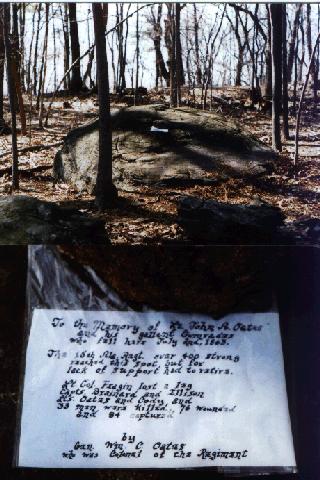 To the Memory of Lt. John A. Oates
and his gallant Comrades
who fell here July 2nd, 1863.
The 15th Ala. Regt. over 400 strong
reached this spot, but for
lack of support had to retire.
Lt Col. Feagin lost a leg
Capts. Brainard and Ellison
Lts. Oates and Cody and
33 men were killed, 76 wounded
and 84 captured
by
Gen. Wm. C. Oates
who was Colonel of the Regiment